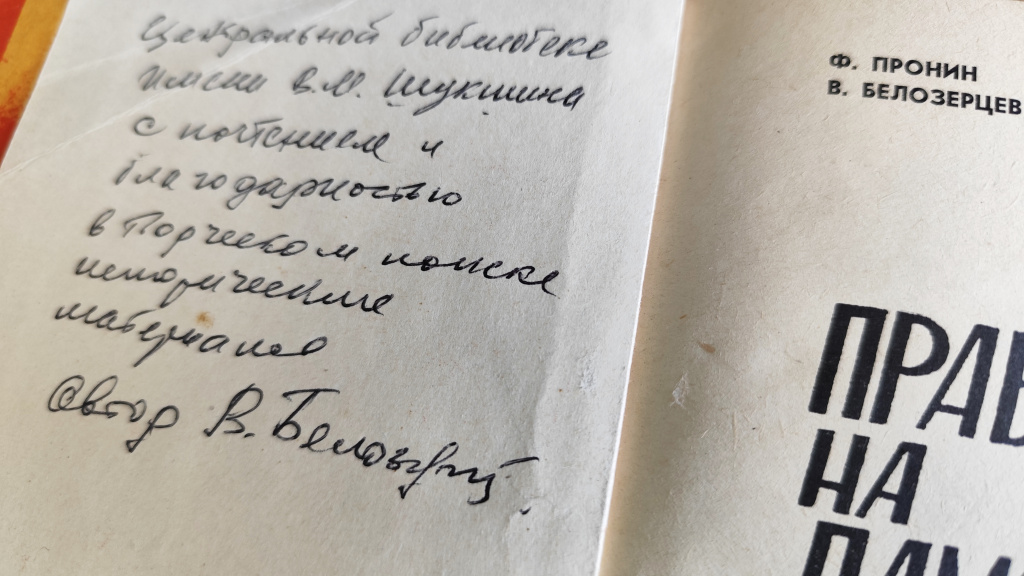 Центральной библиотеке
имени В.М. Шукшина
с почтением и
благодарностью
в творческом поиске
исторические
материалов
Автор В. Белозерцев.
Ф. ПРОНИН
В. БЕЛОЗЕРЦЕВ
ПРАВ
НА
ПАМ